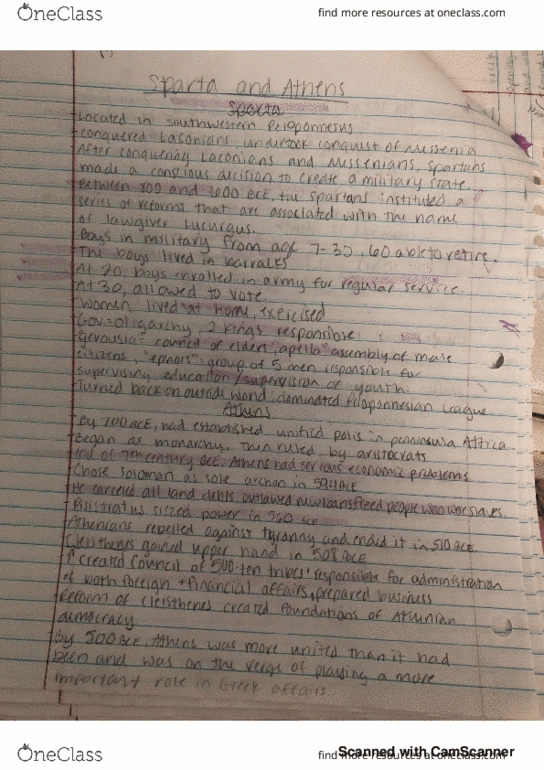 OneClass
find more resources at oneclass.com
Sparta and Athens
Sparta
-Located in southwestern Peloponnesus
-conquered Laconians, undertook conquist of Messenia
-After conquering Laconians and Messenians, Spartans
made a conscious decision to create a military state.
-Between 800 and 600 BCE, the spartans instituted a
series of reforms that are associated with the name
of lawgiver Lycurgus.
-Boys in military from age 7-30, 60 able to retire.
-The boys lived in barraks
-At 20, boys enrolled in army for regular service.
-At 30, allowed to vote.
-women lived at home, exercised
-Gov=oligarchy, 2 kings responsible
-Gerousia= council of elders, "apella" assembly of male
citizens, "ephors"=group of 5 men responsible for
supervising education/supervision of youth.
-Turned back on outside world, dominated Peloponnesian League
Athens
-By 700 BCE, had established unified polis in penninsula Attica
-Began as monarchy, then ruled by aristocrats
-End of 7th century BCE, Athens had serious economic problems
-Chose Soloman as sole archon in 594 BCE
-He canceled all land debts, outlawed new loans freed people who were slaves
-Pilistratus sized power in 560 BCE
-Athenians rebelled against tyranny and ended it in 510 BCE
-Cleisthenes gained upper hand in 508 BCE
↑ created Council of 500-ten tribes' responsible for administration
of both foreign + financial affairs, prepared business
-Reform of Cleisthenes created foundations of Athenian
democracy
-By 500 BCE, Athens was more united than it had
been and was on the verge of playing a more
important role in Greek affairs
OneClass
find more resources at oneclass.com
Scanned with CamScanner